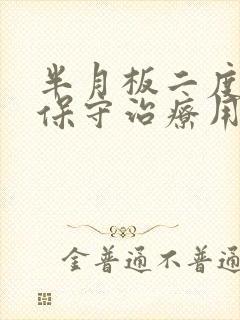 半月板二度
保守治療用
金普通不普通